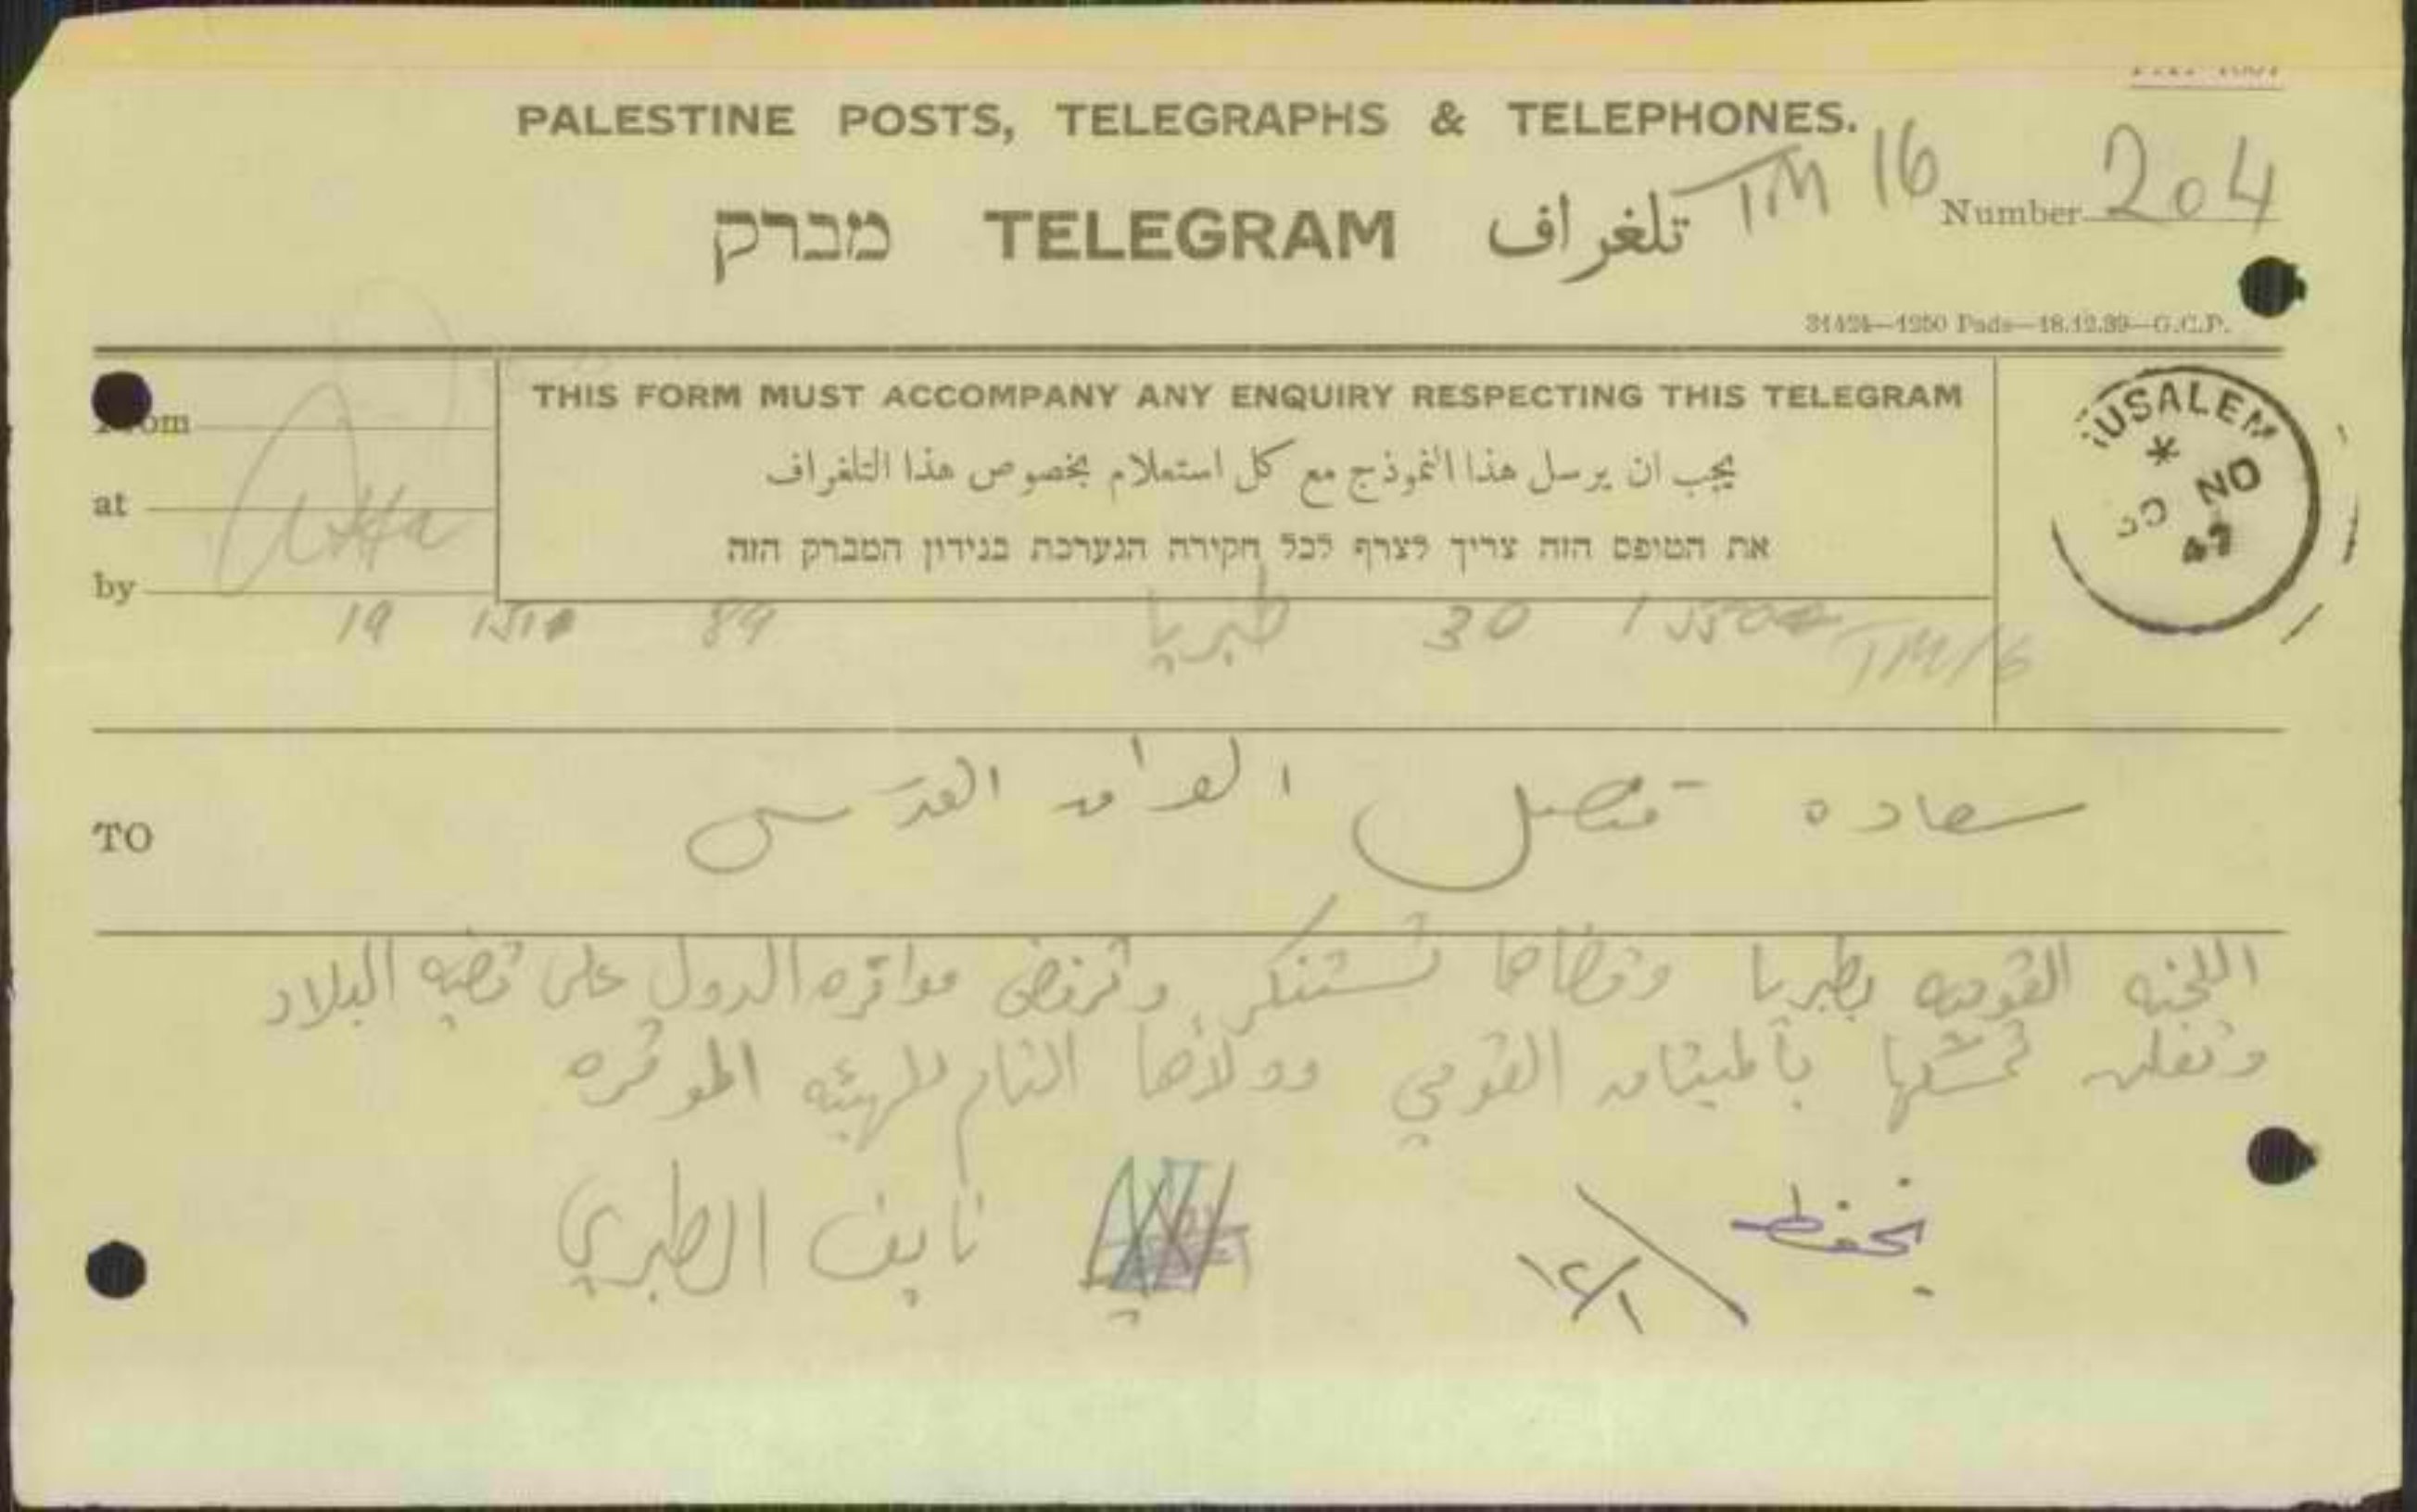 PALESTINE POSTS, TELEGRAPHS & TELEPHONES.
מברק TELEGRAM تلغراف
TM 16 Number 204
31424—1250 Pads—18.12.39—G.C.P.
From
at
by
THIS FORM MUST ACCOMPANY ANY ENQUIRY RESPECTING THIS TELEGRAM
يجب ان يرسل هذا النموذج مع كل استعلام بخصوص هذا التلغراف
את הטופס הזה צריך לצרף לכל חקירה הנערכת בנידון המברק הזה
USALEM
NO
47
19 89 طبريا 30
TM/6
TO
سعاده قنصل العراق القدس
اللجنه القوميه بطبريا وقضاها تستنكر وترفض مؤامره الدول على قضيه البلاد
وتعلن تمسكها بالميثاق القومي وولاءها التام للهيئه الموقره
نايف الطبري
يحفظ
١٢/١